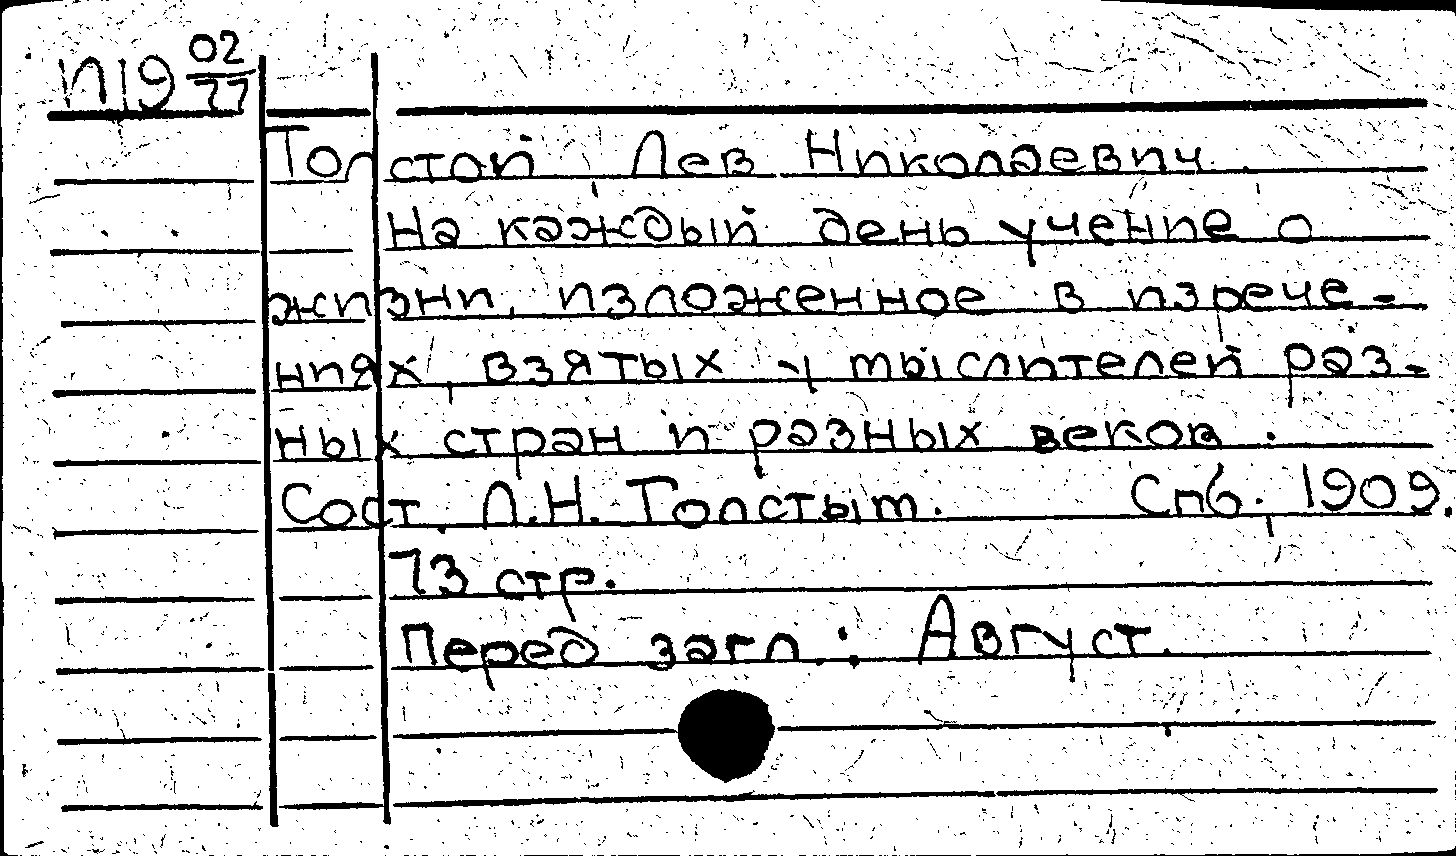 П19 02/77
Толстой, Лев Николаевич.
На каждый день учение о
жизни, изложенное в изрече-
ниях, взятых у мыслителей раз-
ных стран и разных веков.
Сост. Л.Н. Толстым. Спб., 1909.
73 стр.
Перед загл.: Август.